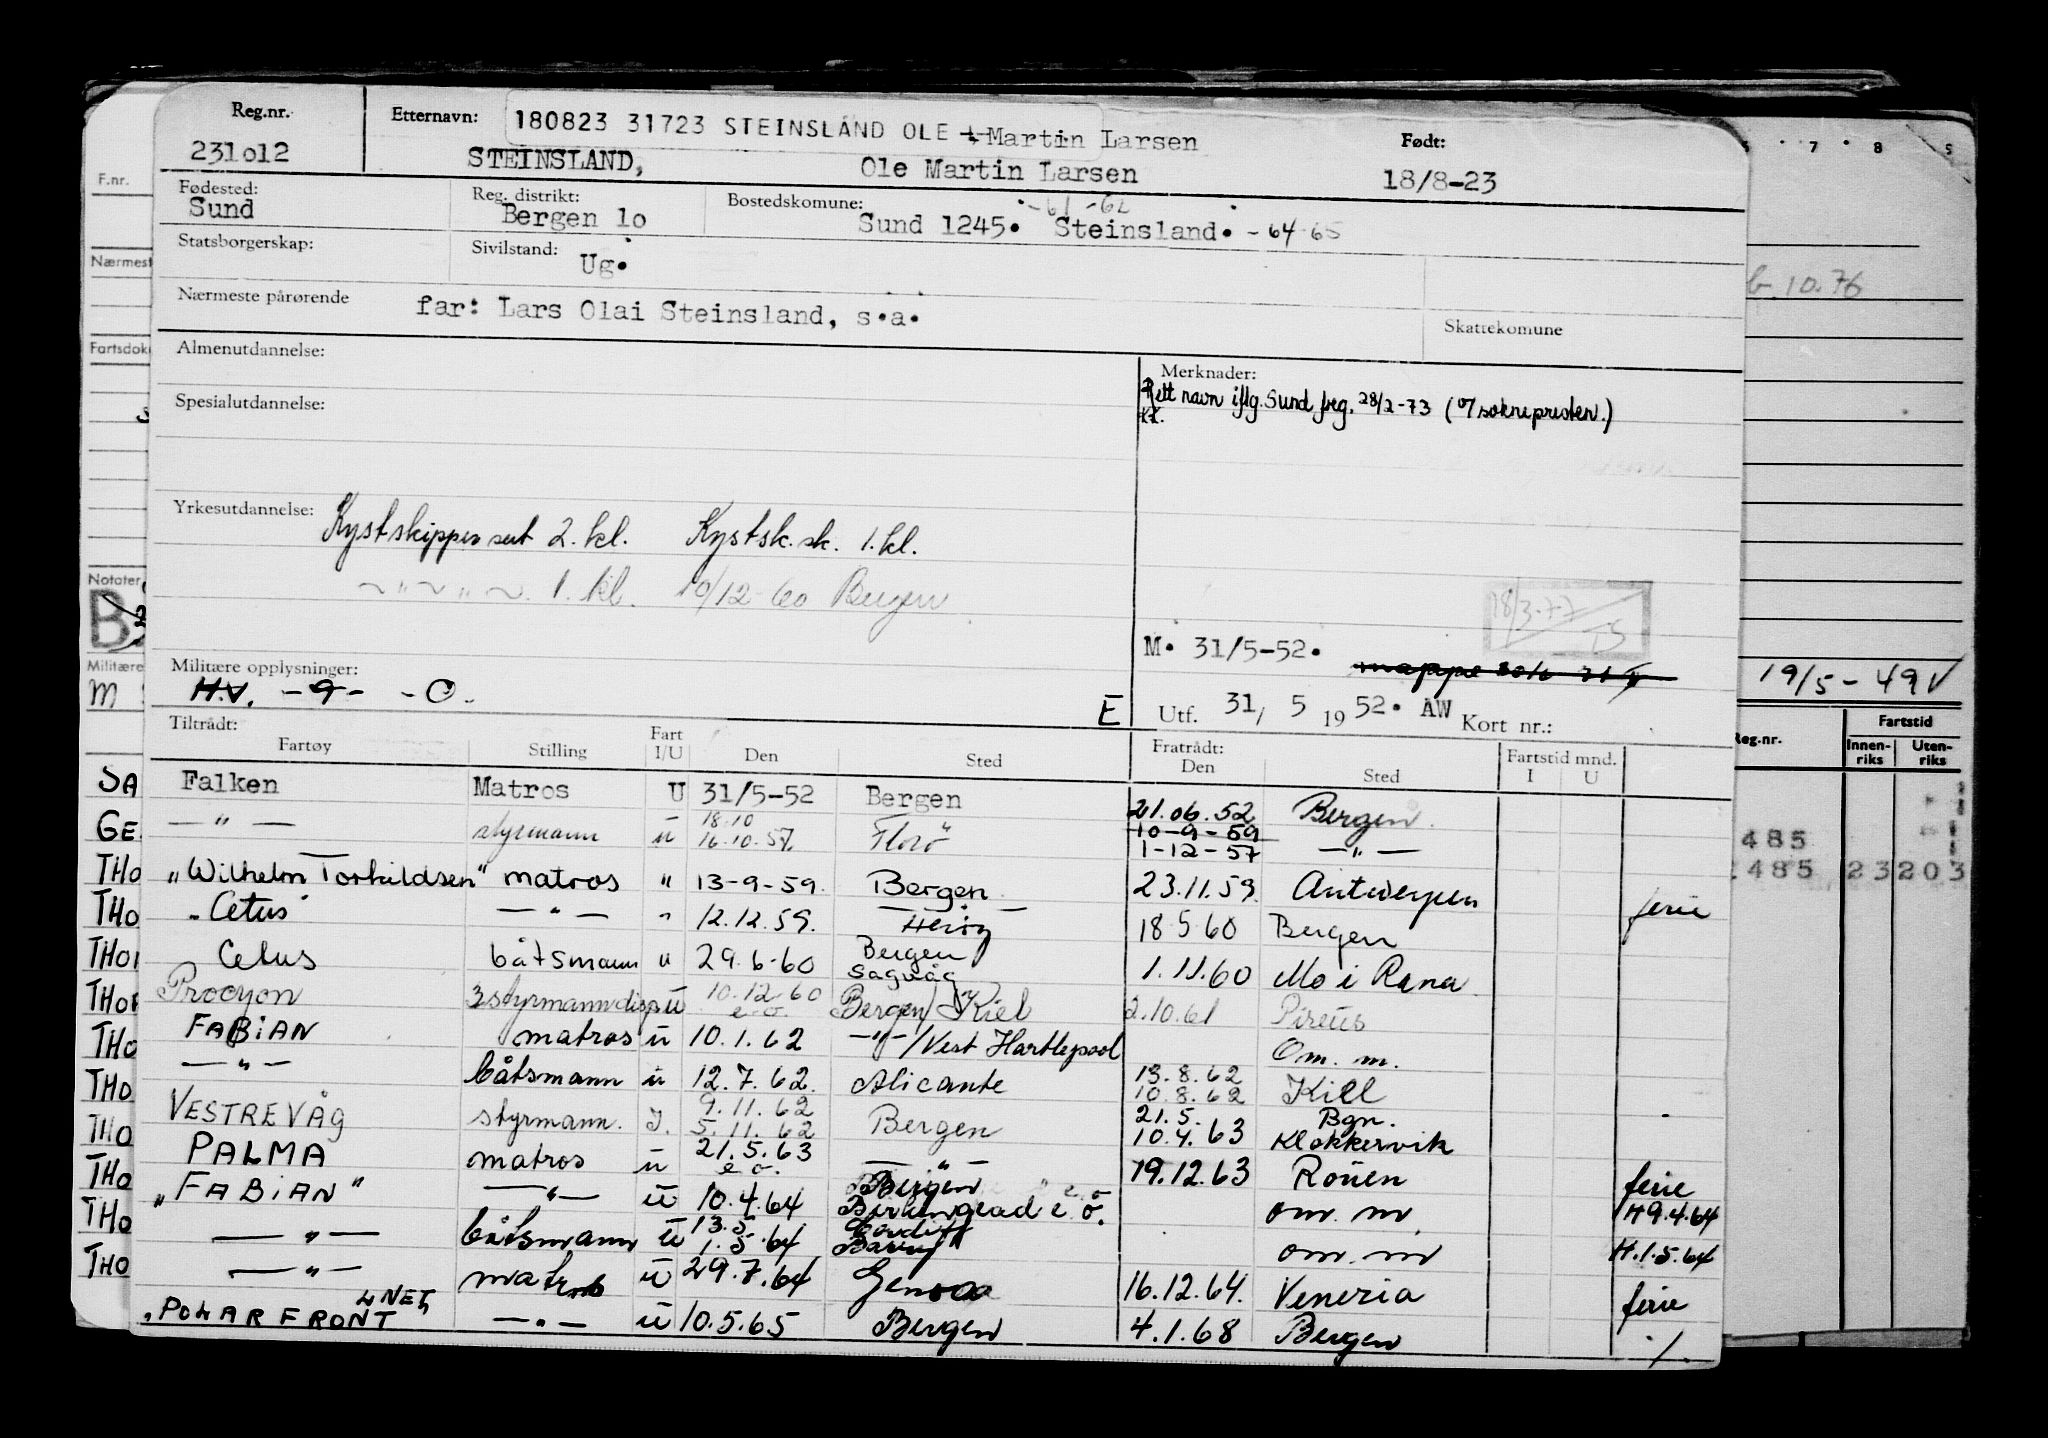 Reg.nr. Etternavn: 180823 31723 STEINSLAND OLE Martin Larsen Født:
231o12 STEINSLAND, Ole Martin Larsen 18/8-23
Fødested: Reg. distrikt: Bostedskomune: -61 -62
Sund Bergen 1o Sund 1245. Steinsland. -64-65
Statsborgerskap: Sivilstand: Ug.
Nærmeste pårørende far: Lars Olai Steinsland, s.a. Skattekomune
Almenutdannelse: Merknader:
Rett navn iflg. Sund freg. 28/2-73 (v/soknepresten.)
KK.
Spesialutdannelse:
Yrkesutdannelse: Kystskippersert 2. kl. Kystsk.sk. 1. kl.
~ " ~ " ~. 1. kl. 10/12-60 Bergen
18/3-77
TS
M. 31/5-52.
mappe
Militære opplysninger: H.V. -9- -O. E
Utf. 31/ 5 1952. AW Kort nr.:
Tiltrådt: Fartøy Stilling Fart I/U Den Sted Fratrådt: Den Sted Fartstid mnd. I U
Falken Matros U 31/5-52 Bergen 21.06.52 Bergen.
— " — styrmann u 18.10 16.10.57. Florø 10-9-59 1-12-57 — " —
"Wilhelm Torkildsen" matros " 13-9-59. Bergen 23.11.59 Antwerpen ferie
"Cetus" — " — " 12.12.59. Herøy 18 5 60 Bergen
Cetus båtsmann u 29.6-60 Bergen Sagvåg 1.11.60 Mo i Rana
Procyon 3styrmanndisp ü 10.12.60 e.o. Bergen/Kiel 2.10.61 Pireus
FABIAN matros ü 10.1.62 — " —/Vest Hartlepool Om. m.
— " — båtsmann ü 12.7.62. Alicante 13.8.62 10.8.62 Kiel
VESTREVÅG styrmann. I. 9.11.62 5.11.62 Bergen 21.5. 10.4.63 Bgn. Klokkervik
PALMA matros ü 21.5.63 e o. — " — 19.12.63 Rouen ferie
"FABIAN" — " — ü 10.4.64 Bergen e.o. om. m H9.4.64
— " — båtsmann ü 13.5. 1.5.64 om. m H.1.5.64
— " — matros ü 29.7.64 Genoa 16.12.64. Venezia ferie
"POLARFRONT — " — ü 10.5.65 Bergen 4.1.68 Bergen ./.
F.nr.
Nærmest
Fartsdok
Notater
Militære
M
SA
GE
THO
THO
THO
THO
THO
THO
THO
THO
THO
THO
7 8
10.76
19/5-49 V
Reg.nr. Fartstid
Innen-riks Uten-riks
485
485 23 203